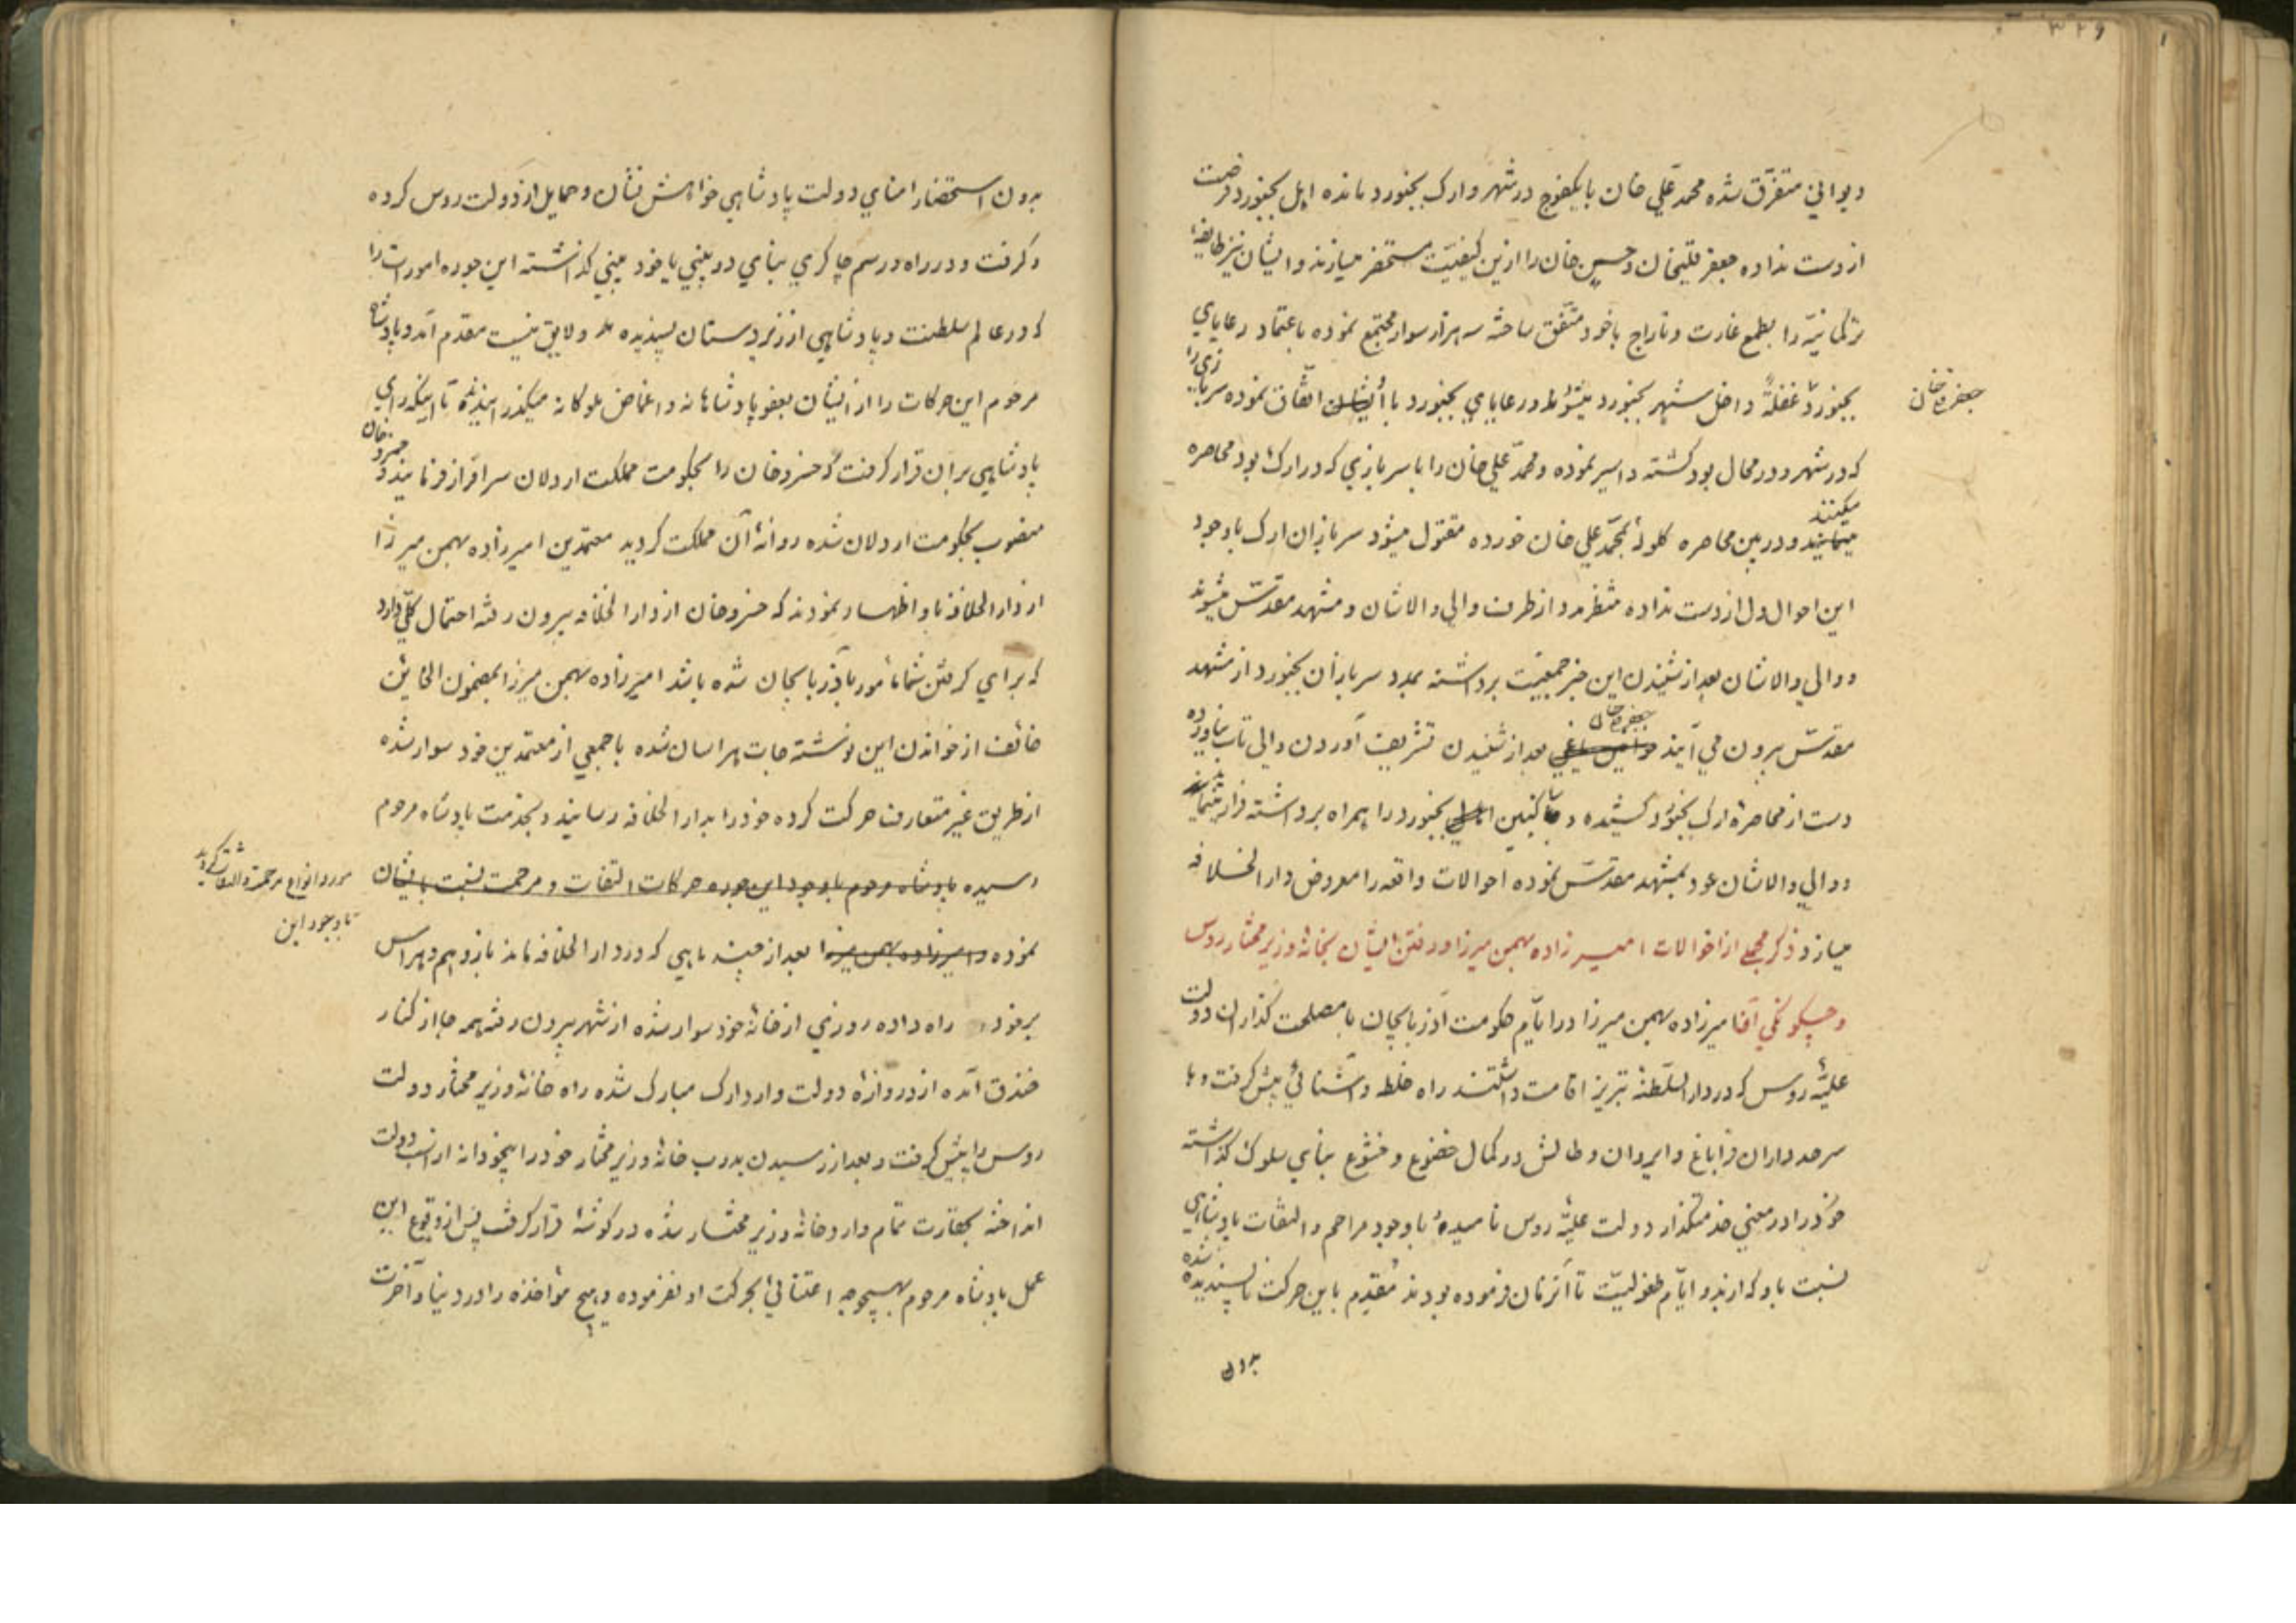 ۳۲۶
دیوانی متفرّق شده محمد علی خان با یکفوج در شهر و ارک بجنورد مانده اهل بجنورد فرصت
از دست نداده جعفر قلیخان و حسین خان را ازین کیفیّت مستحضر میسازند و ایشان نیز طایفهٔ
ترکمانیّه را بطمع غارت و تاراج با خود متّفق ساخته سه هزار سوار مجتمع نموده باعتماد رعایای
بجنورد غفلةً داخل شهر بجنورد میشوند و رعایای بجنورد با ایشان اتّفاق نموده سربازی را
جعفر قلیخان
که در شهر و در محال بود کشته و اسیر نموده و محمّد علی خان را با سربازی که در ارک بود محاصره
میکنند
مینمایند و در بین محاصره گلوله بمحمّد علی خان خورده مقتول میشود سربازان ارک با وجود
این احوال دل از دست نداده منتظر مدد از طرف والی والاشان و مشهد مقدّس میشوند
و والی والاشان بعد از شنیدن این خبر جمعیّت برداشته بمدد سربازان بجنورد از مشهد
جعفر قلیخان
مقدّس بیرون می آیند بعد از شنیدن تشریف آوردن والی تاب نیاورده
دست از محاصرهٔ ارک بجنورد کشیده و ساکنین بجنورد را همراه برداشته فرار مینماید
و والی والاشان عود بمشهد مقدّس نموده احوالات واقعه را معروض دار الخلافه
میسازد ذکر مجملی از احوالات امیرزاده بهمن میرزا و رفتن ایشان بخانهٔ وزیر مختار روس
و چگونگی آن امیرزاده بهمن میرزا در ایّام حکومت آذربایجان با مصلحت گذاران دولت
علیّهٔ روس که در دار السّلطنهٔ تبریز اقامت داشتند راه خلطه و آشنائی پیش گرفت و با
سرحد داران قراباغ و ایروان و طالش در کمال خضوع و خشوع بنای سلوک گذاشته
خود را در معنی خدمتگذار دولت علیّهٔ روس نامیده با وجود مراحم و التفات پادشاهی
نسبت باو که از بدو ایّام طفولیّت تا آنزمان فرموده بودند مقدم باین حرکت ناپسندیده شده
بدون
بدون استحضار امنای دولت پادشاهی خواهش نشان و حمایل از دولت روس کرده
و گرفت و در راه و رسم چاکری بنای دو بینی با خود بینی گذاشته این جوره امورات را
که در عالم سلطنت و پادشاهی از زیردستان پسندیده و لایق نیست مقدم آمد و پادشاه
مرحوم این حرکات را از ایشان بعفو پادشاهانه و اغماض ملوکانه میگذرانیدند تا اینکه رای
پادشاهی بر آن قرار گرفت که خسرو خان را بحکومت مملکت اردلان سرافراز فرمایند و خسرو خان
منصوب بحکومت اردلان شده روانهٔ آن مملکت گردید معتمدین امیرزاده بهمن میرزا
از دار الخلافه باو اظهار نمودند که خسرو خان از دار الخلافه بیرون رفته احتمال کلّی دارد
که برای گرفتن شما مامور باذربایجان شده باشد امیرزاده بهمن میرزا بمضمون الخائن
خائف از خواندن این نوشته جات هراسان شده با جمعی از معتمدین خود سوار شده
از طریق غیر متعارف حرکت کرده خود را بدار الخلافه رسانیده و بخدمت پادشاه مرحوم
رسیده پادشاه مرحوم با وجود این جوره حرکات التفات و مرحمت نسبت بایشان
مورد انواع مرحمت و التفات گردید
با وجود این
نموده و امیرزاده بهمن میرزا بعد از چند ماهی که در دار الخلافه ماند باز وهم و هراس
بر خود راه داده روزی از خانهٔ خود سوار شده از شهر بیرون رفته همه جا از کنار
خندق آمده از دروازهٔ دولت وارد ارک مبارک شده راه خانهٔ وزیر مختار دولت
روس را پیش گرفت و بعد از رسیدن بدرب خانهٔ وزیر مختار خود را بیخودانه از اسب دولت
انداخته بحقارت تمام وارد خانهٔ وزیر مختار شده در گوشهٔ قرار گرفت پس از وقوع این
عمل پادشاه مرحوم بهیچوجه اعتنائی بحرکت او نفرموده و هیچ مؤاخذه را در دنیا و آخرت